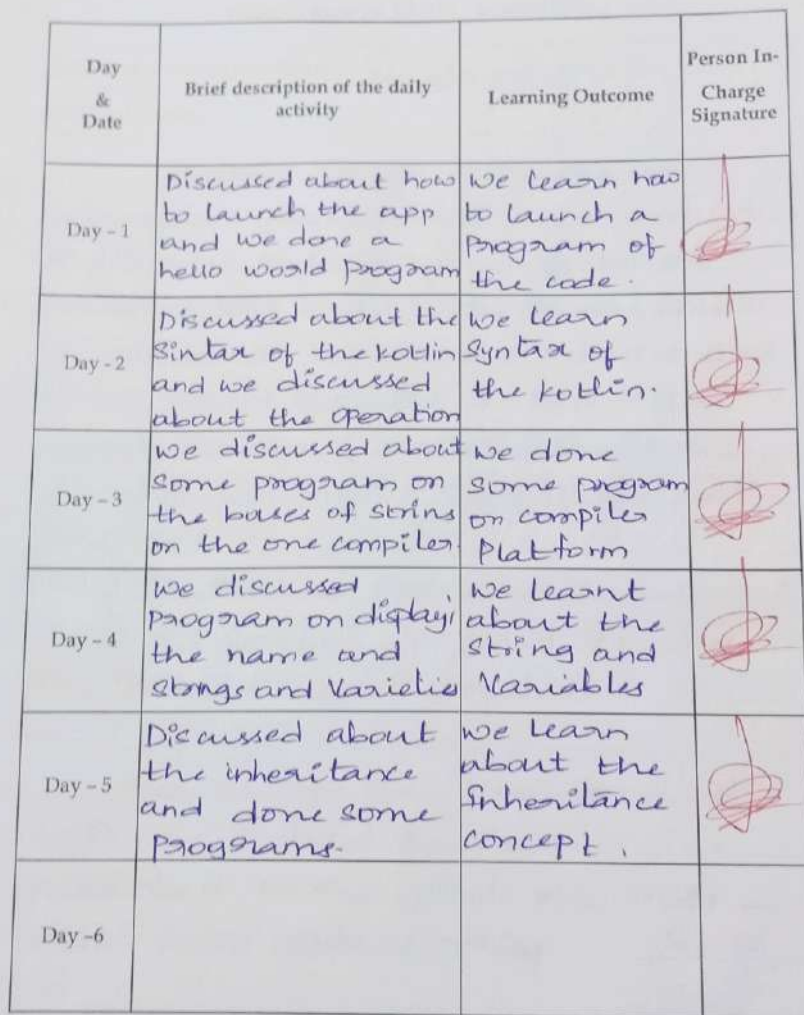 Day
&
Date
Brief description of the daily
activity
Learning Outcome
Person In-
Charge
Signature
Day - 1
Discussed about how
to launch the app
and we done a
hello world program
we learn how
to launch a
program of
the code.
Day - 2
Discussed about the
Sintax of the kotlin
and we discussed
about the operation
we learn
Syntax of
the kotlin.
Day - 3
we discussed about
some program on
the bases of strins
on the one compiler.
we done
some program
on compiler
Platform
Day - 4
we discussed
program on displayi
the name and
strings and Varieties
we learnt
about the
string and
Variables
Day - 5
Discussed about
the inheritance
and done some
programs.
we learn
about the
Inheritance
concept.
Day -6